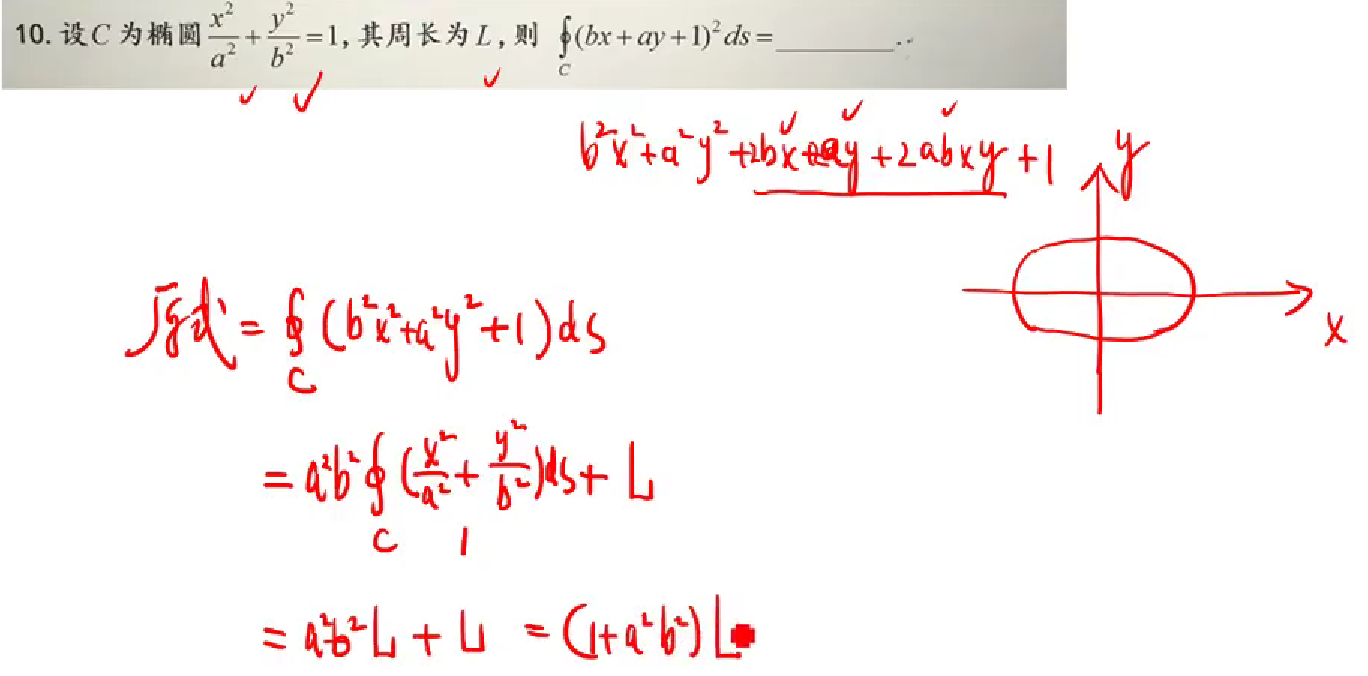 10. 设C为椭圆 x²/a² + y²/b² = 1, 其周长为L, 则 ∮_C (bx+ay+1)² ds = ________.
b²x²+a²y²+2bx+2ay+2abxy+1
y
x
原式 = ∮_C (b²x²+a²y²+1)ds
= a²b² ∮_C (x²/a² + y²/b²)ds + L
1
= a²b²L + L = (1+a²b²)L